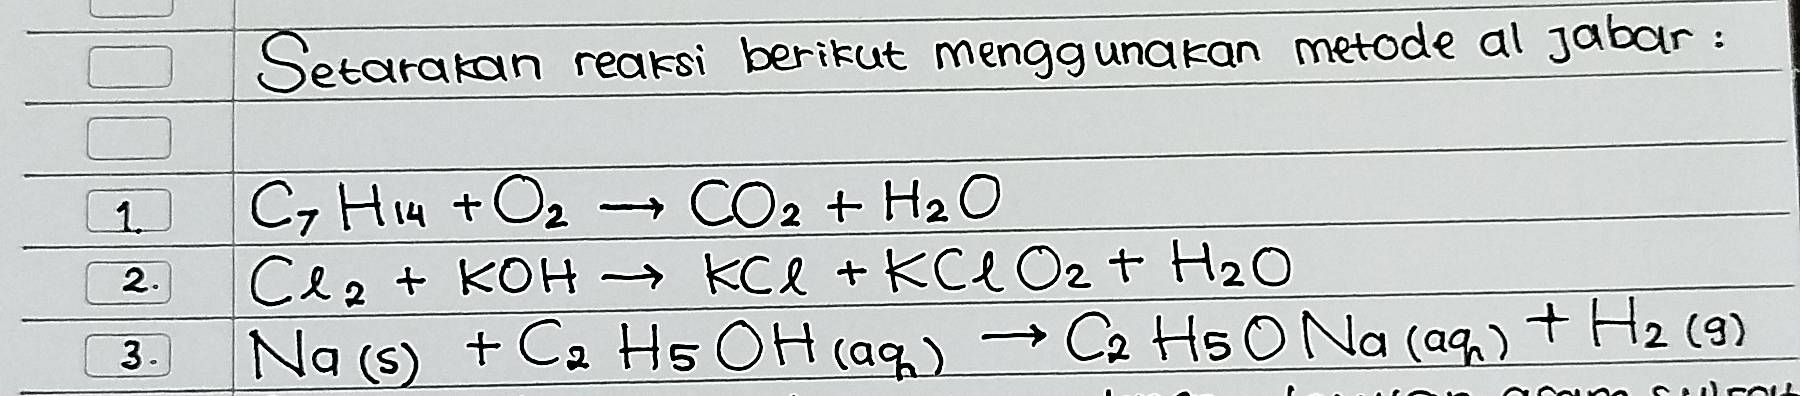 Setarakan reaksi berikut menggunakan metode al jabar :
1. C₇H₁₄ + O₂ → CO₂ + H₂O
2. Cl₂ + KOH → KCl + KClO₂ + H₂O
3. Na (s) + C₂H₅OH (aq) → C₂H₅ONa (aq) + H₂ (g)
asam sulfat